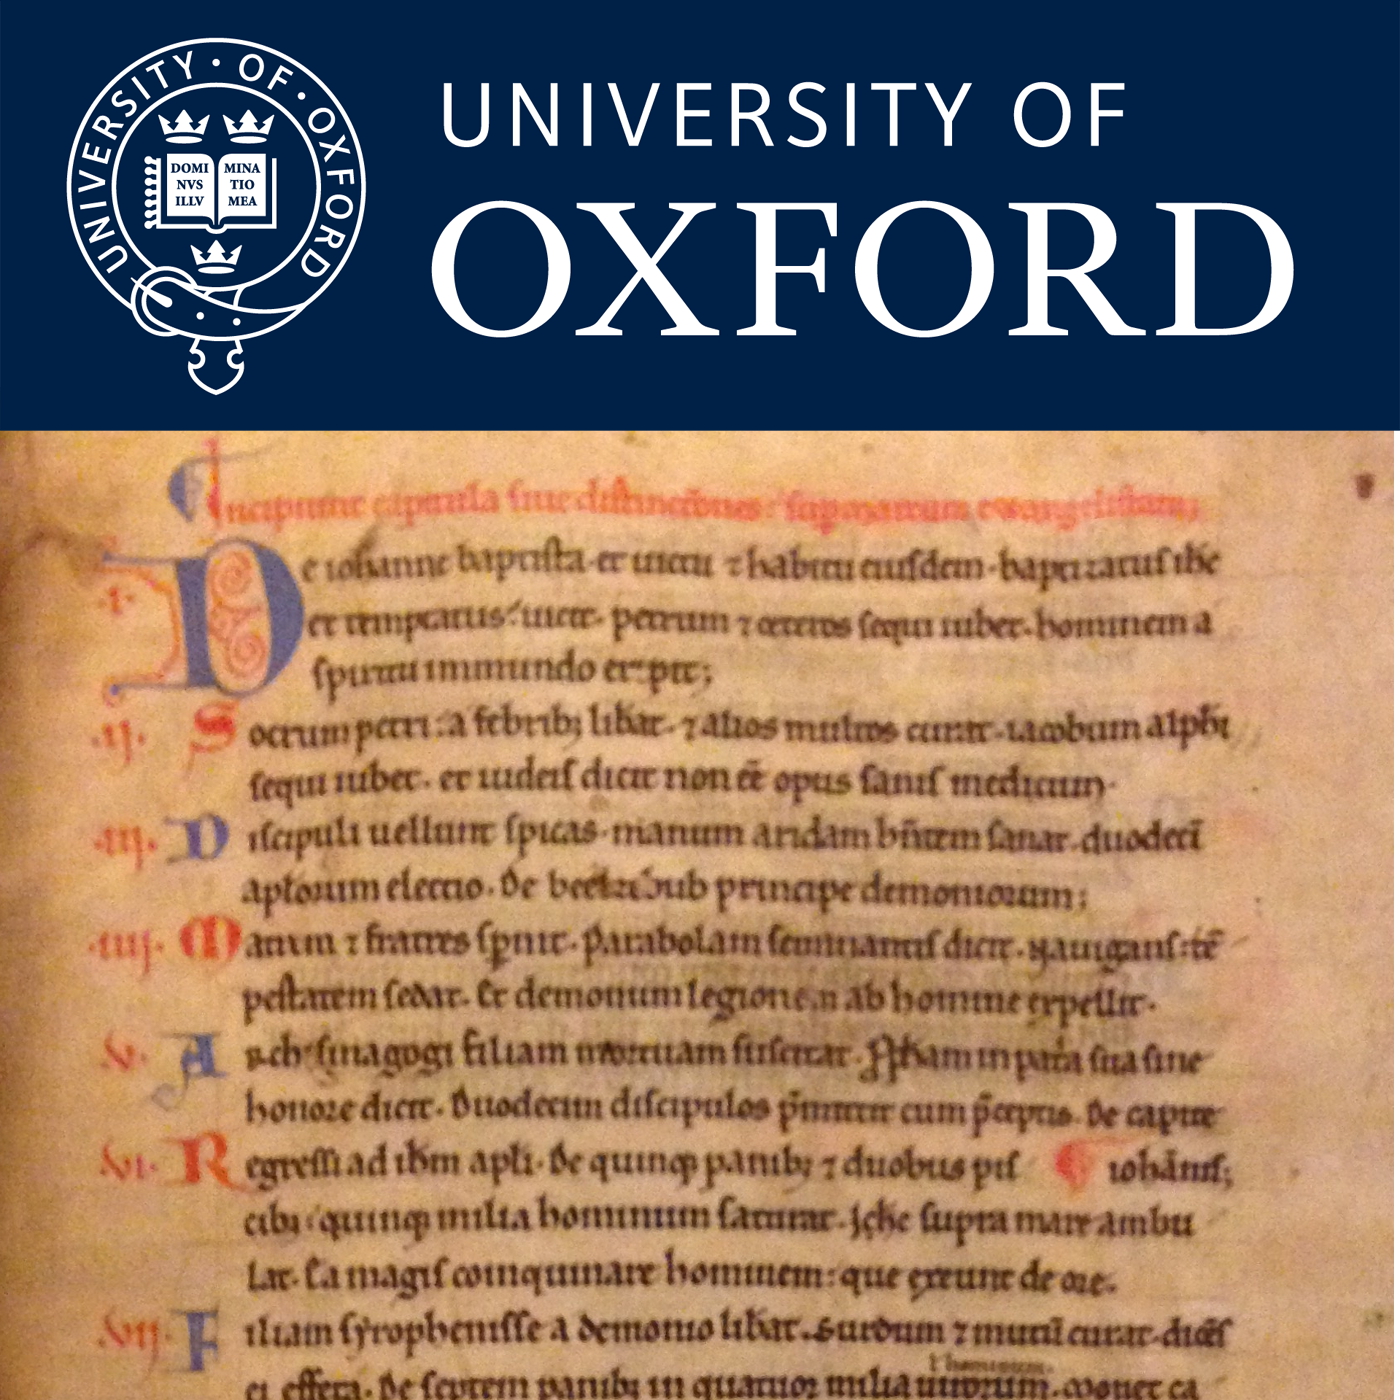 UNIVERSITY · OF · OXFORD
DOMI MINA
NVS TIO
ILLV MEA
UNIVERSITY OF
OXFORD
Incipiunt capitula siue distinctiones
·i· De iohanne baptista·et uictu ⁊ habitu eiusdem·baptizatus ihc
et temptatus uicit· petrum ⁊ ceteros sequi iubet·hominem a
spiritu immundo eripit;
·ij· Socrum petri a febrib; lib̄at·⁊ alios multos curat·iacobum alphi
sequi iubet· et iudeis dicit non eē opus sanis medicum·
·iij· Discipuli uellunt spicas·manum aridam hn̄tem sanat·duodecī
apłorum electio·De beelzebub principe demoniorum;
·iiij· Matrem ⁊ fratres spnit·Parabolam seminantis dicit·Nauigans tē
pestatem sedat· Et demonum legionem ab homine expellit·
·v· Archisinagogi filiam mortuam suscitat·Pph̄am in patria sua sine
honore dicit·Duodecim discipulos p̄mittit cum p̄ceptis·De capite
·vi· Regressi ad ihm apłi·De quinq; panib; ⁊ duobus pis iohānis;
cibi quinq; milia hominum saturat· supra mare ambu
lat·Ea magis coinquinare hominem:que exeunt de ore·
·vii· Filiam syrophenisse a demonio lib̄at·Surdum ⁊ mutū curat·dicēs
ei effeta·De septem panib; iiii quatuor milia